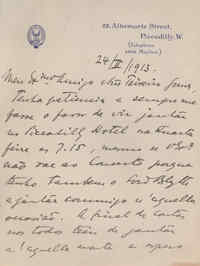 22, Albemarle Street,
Piccadilly. W.
(Telephone
Mayfair.)
24/III/1913.
Meu Amigo Snr Teixeira Gomes,
Tenha paciencia e sempre me
faça o favor de vir jantar
no Piccadilly Hotel na quarta
feira ás 7.15, mesmo se V. Exª
não vae ao Concerto porque
tenho tambem o Lord Blyth
a jantar commigo n'aquella
occasião. A final de contas
nos todos teem de jantar
a